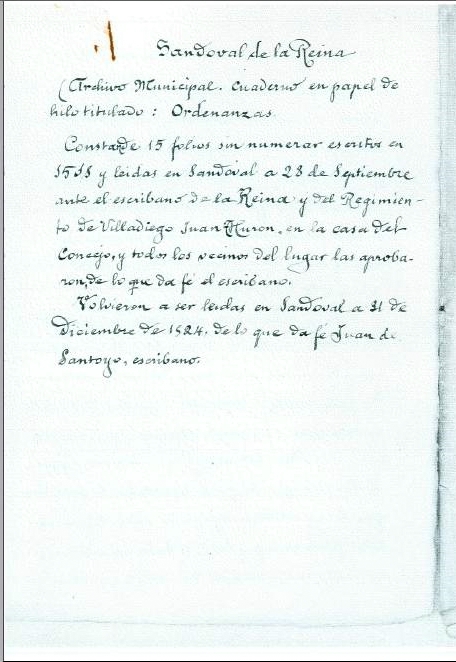 Sandoval de la Reina
(Archivo Municipal. Cuaderno en papel de
hilo titulado: Ordenanzas
Constade 15 folios sin numerar escritos en
y leidas en Sandoval a 28 de Septiembre
ante el escribano de la Reina y del Regimien-
to de Villadiego Juan Huron, en la casa del
Concejo, y todos los vecinos del lugar las aproba-
ron, de lo que da fé el escribano.
Volvieron a ser leidas en Sandoval a 31 de
Diciembre de 1524, de lo que da fé Juan de
Santoyo, escribano.